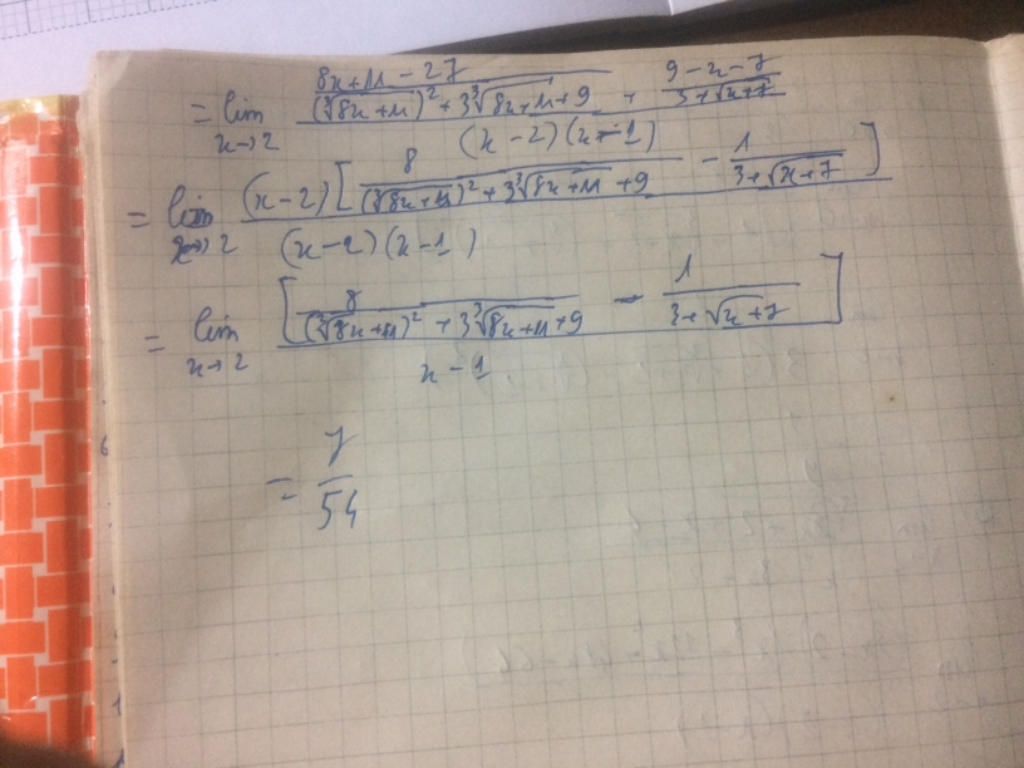 = lim x→2 ((8x+11-27)/((∛(8x+11))² + 3∛(8x+11) + 9) + (9-x-7)/(3+√(x+7)))/((x-2)(x-1))
= lim x→2 ((x-2)[8/((∛(8x+11))² + 3∛(8x+11) + 9) - 1/(3+√(x+7))])/((x-2)(x-1))
= lim x→2 [8/((∛(8x+11))² + 3∛(8x+11) + 9) - 1/(3+√(x+7))]/(x-1)
= 7/54